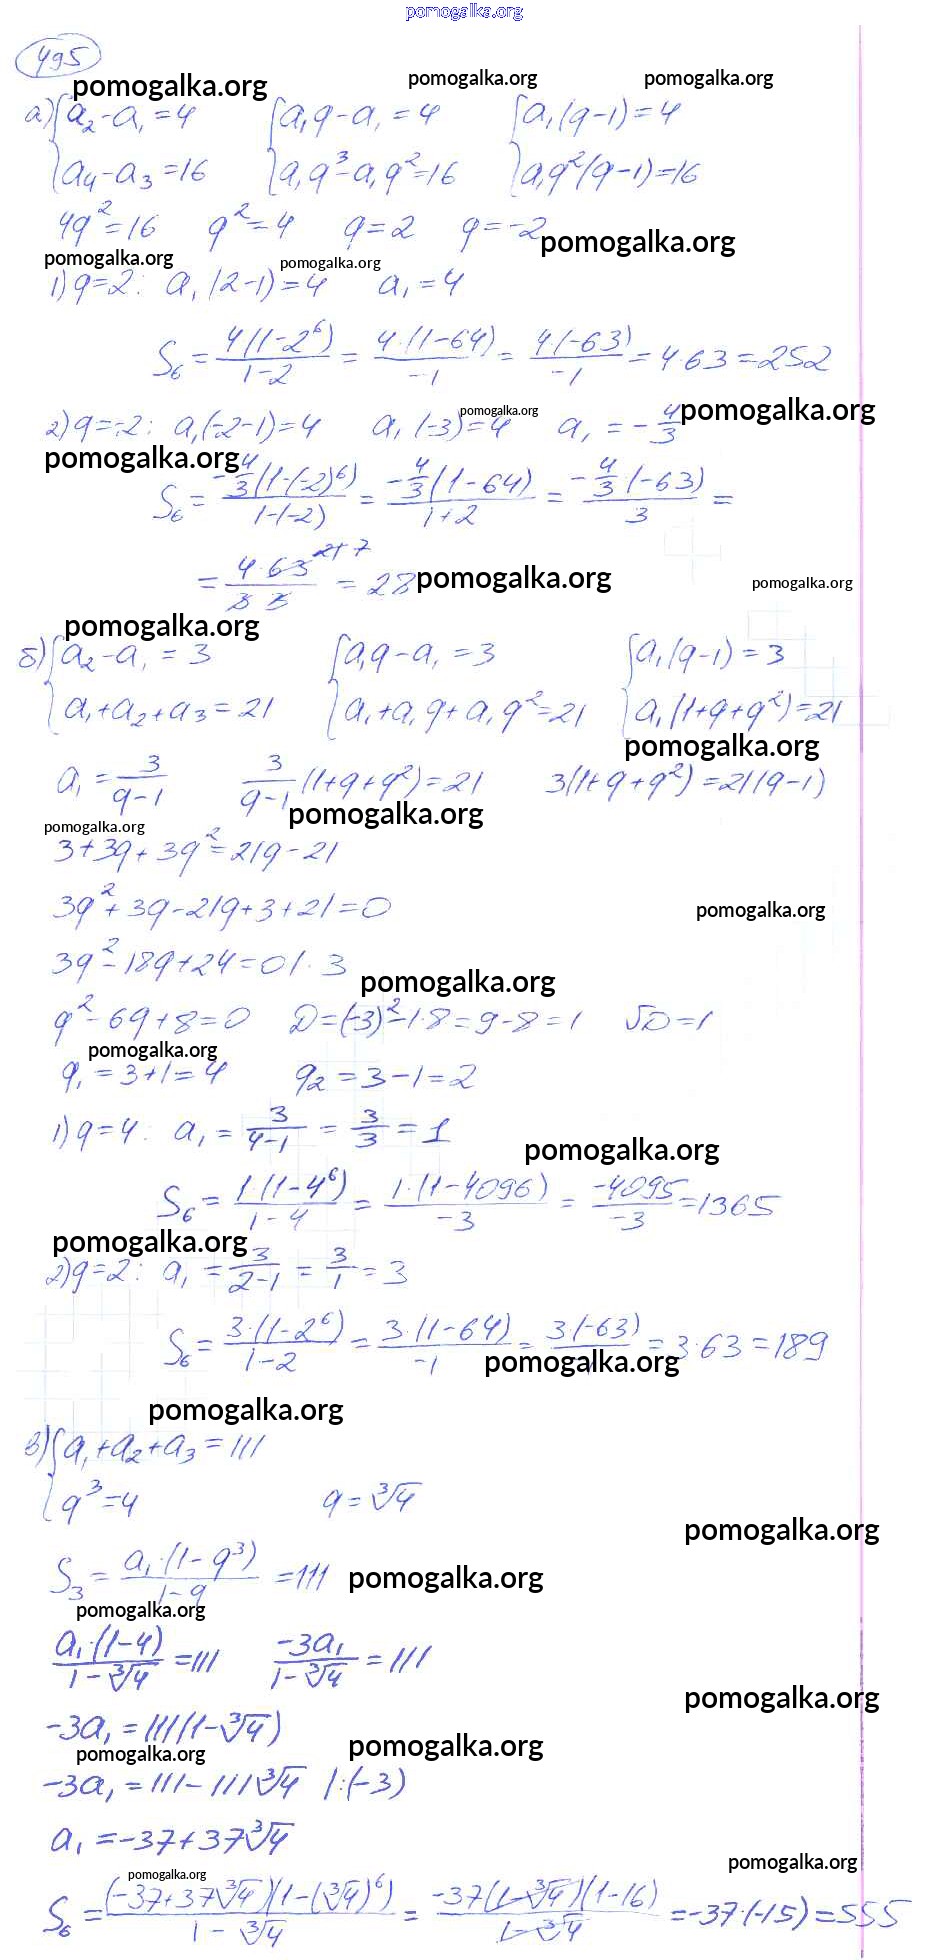 pomogalka.org
495
pomogalka.org pomogalka.org pomogalka.org
а) { a₂ - a₁ = 4 { a₁q - a₁ = 4 { a₁(q-1) = 4
a₄ - a₃ = 16 a₁q³ - a₁q² = 16 a₁q²(q-1) = 16
4q² = 16 q² = 4 q = 2 q = -2 pomogalka.org
pomogalka.org pomogalka.org
1) q=2: a₁(2-1) = 4 a₁ = 4
S₆ = 4(1-2⁶)/(1-2) = 4·(1-64)/(-1) = 4(-63)/(-1) = 4·63 = 252
pomogalka.org pomogalka.org
2) q=-2: a₁(-2-1) = 4 a₁(-3) = 4 a₁ = -4/3
pomogalka.org
S₆ = -4/3(1-(-2)⁶)/(1-(-2)) = -4/3(1-64)/(1+2) = -4/3(-63)/3 =
= 4·63/(3·3) 21 7 = 28 pomogalka.org pomogalka.org
pomogalka.org
б) { a₂ - a₁ = 3 { a₁q - a₁ = 3 { a₁(q-1) = 3
a₁ + a₂ + a₃ = 21 a₁ + a₁q + a₁q² = 21 a₁(1+q+q²) = 21
pomogalka.org
a₁ = 3/(q-1) 3/(q-1) (1+q+q²) = 21 3(1+q+q²) = 21(q-1)
pomogalka.org
pomogalka.org
3+3q+3q² = 21q - 21
3q² + 3q - 21q + 3 + 21 = 0 pomogalka.org
3q² - 18q + 24 = 0 |· 3
pomogalka.org
q² - 6q + 8 = 0 D = (-3)² - 1·8 = 9 - 8 = 1 √D = 1
pomogalka.org
q₁ = 3+1 = 4 q₂ = 3 - 1 = 2
1) q=4: a₁ = 3/(4-1) = 3/3 = 1
pomogalka.org
S₆ = 1·(1-4⁶)/(1-4) = 1·(1-4096)/(-3) = -4095/-3 = 1365
pomogalka.org
2) q=2: a₁ = 3/(2-1) = 3/1 = 3
S₆ = 3·(1-2⁶)/(1-2) = 3·(1-64)/(-1) = 3(-63)/ = 3·63 = 189
pomogalka.org
pomogalka.org
в) { a₁ + a₂ + a₃ = 111
q³ = 4 q = ∛4
pomogalka.org
S₃ = a₁·(1-q³)/(1-q) = 111 pomogalka.org
pomogalka.org
a₁·(1-4)/(1-∛4) = 111 -3a₁/(1-∛4) = 111
pomogalka.org
-3a₁ = 111(1-∛4)
pomogalka.org pomogalka.org
-3a₁ = 111 - 111∛4 |:(-3)
a₁ = -37 + 37∛4
pomogalka.org pomogalka.org
S₆ = (-37+37∛4)(1-(∛4)⁶)/(1-∛4) = -37(1-∛4)(1-16)/(1-∛4) = -37·(-15) = 555